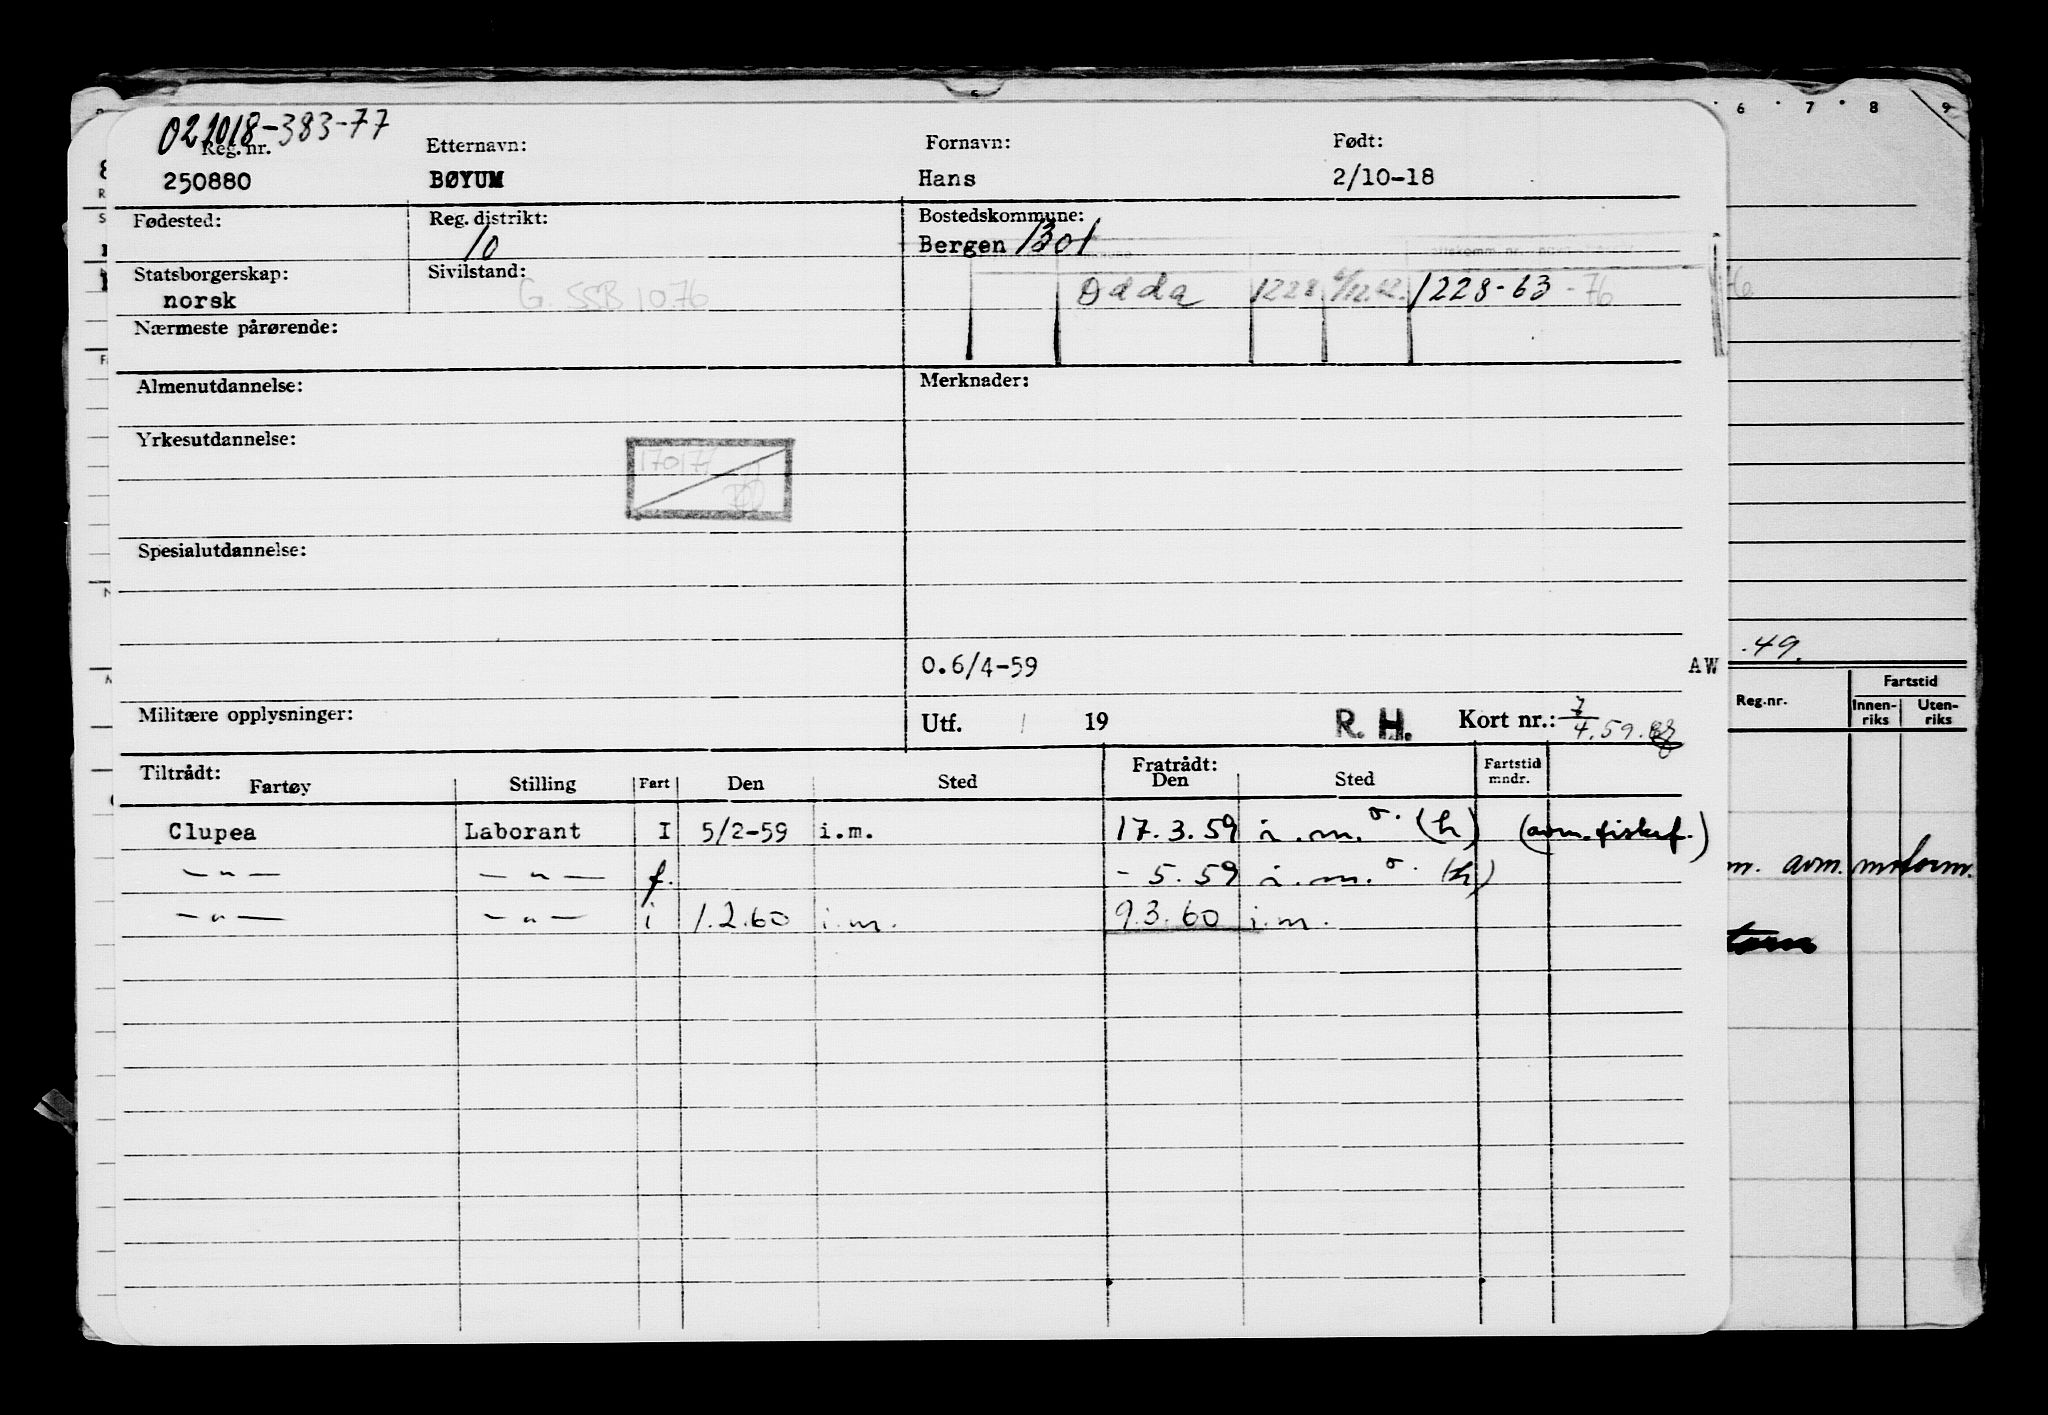 6 7 8 9
021018-383-77
Reg. nr. Etternavn: Fornavn: Født:
250880 BØYUM Hans 2/10-18
Fødested: Reg. distrikt: Bostedskommune:
10 Bergen 1301
Statsborgerskap: Sivilstand:
norsk G. SSB 1076 Odda 1228 1228-63-76
Nærmeste pårørende:
Almenutdannelse: Merknader:
Yrkesutdannelse:
170177
Spesialutdannelse:
.49.
O.6/4-59 AW
Reg.nr. Fartstid
Innen-riks Uten-riks
Militære opplysninger: Utf. / 19 R. H. Kort nr.: 7/4.59.
Tiltrådt: Fratrådt:
Fartøy Stilling Fart Den Sted Den Sted Fartstid mndr.
Clupea Laborant I 5/2-59 i.m. 17.3.59 i.m.o. (h) (avm. fiskef.)
— " — — " — f. - 5.59 i.m.o. (h)
m. avm.
— " — — " — i 1.2.60 i.m. 9.3.60 i.m.